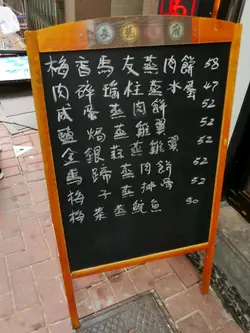 梅香馬友蒸肉餅 58
肉碎瑤柱蒸水蛋 47
咸蛋蒸肉餅 52
鹽焗蒸雞翼 52
金銀蒜蒸雞翼 52
馬蹄蒸肉餅 52
梅子蒸排骨 52
梅菜蒸鯇魚 90